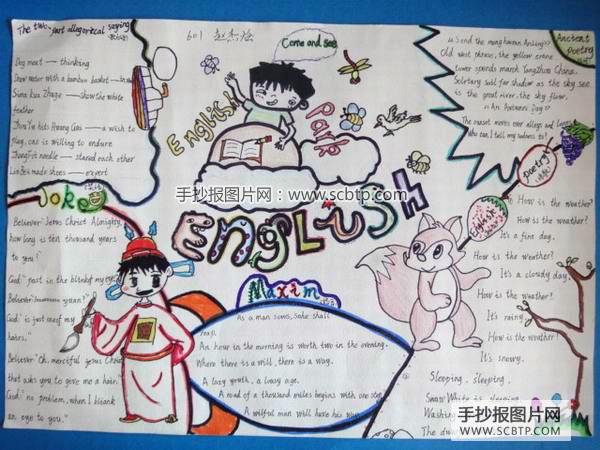 The two-part allegorical saying
601
Come and see
Ancient Poetry
Dog meat — thinking
Draw water with a bamboo basket —
Sima kua Zhuge — show the white
feather
Zhou Yu hits Huang Gai — a wish to
play, one is willing to endure
Zhang Fei needle — stared each other
Liu Bei made shoes — expert
old west terrace, the yellow crane
tower spends march Yangzhou Chana.
Solitary sail far shadow as the sky see
is the great river, the sky flow.
<<An Autumn Day>>
Who can I tell my sadness to?
English
Park
手抄报图片网:www.scbtp.com
ENGLISH
Joke
Believer: Jesus Christ Almighty,
how long is that thousand years
to you?
God: "past in the blink of my eyes
Believer:
God: "is just one of my
hairs."
Believer: "Oh, merciful Jesus Christ
that asks you to give me a hair.
God: "no problem, when I blank
an eye to you."
Maxim
As a man sows, so he shall
reap.
An hour in the morning is worth two in the evening.
Where there is a will, there is a way.
A lazy youth, a lousy age.
A road of a thousand miles begins with one step.
A wilful man will have his way.
Poetry
English
How is the weather?
How is the weather?
It's a fine day.
How is the weather?
It's a cloudy day.
How is the weather?
It's rainy.
How is the weather?
It's snowy.
Sleeping, sleeping.
Snow White is sleeping.
Washing
The dwa
手抄报图片网
SCBTP.COM